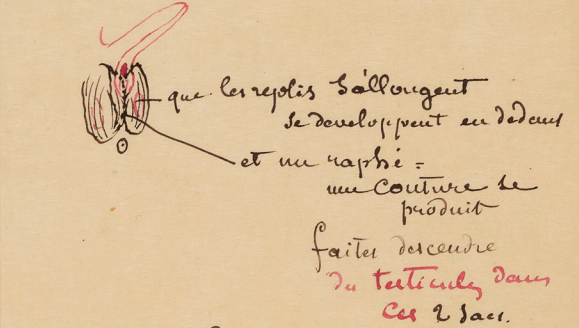 que les replis s'allongent
se developpent en dedans
et un raphé =
une couture se
produit
faites descendre
du testicules dans
ces 2 sacs.